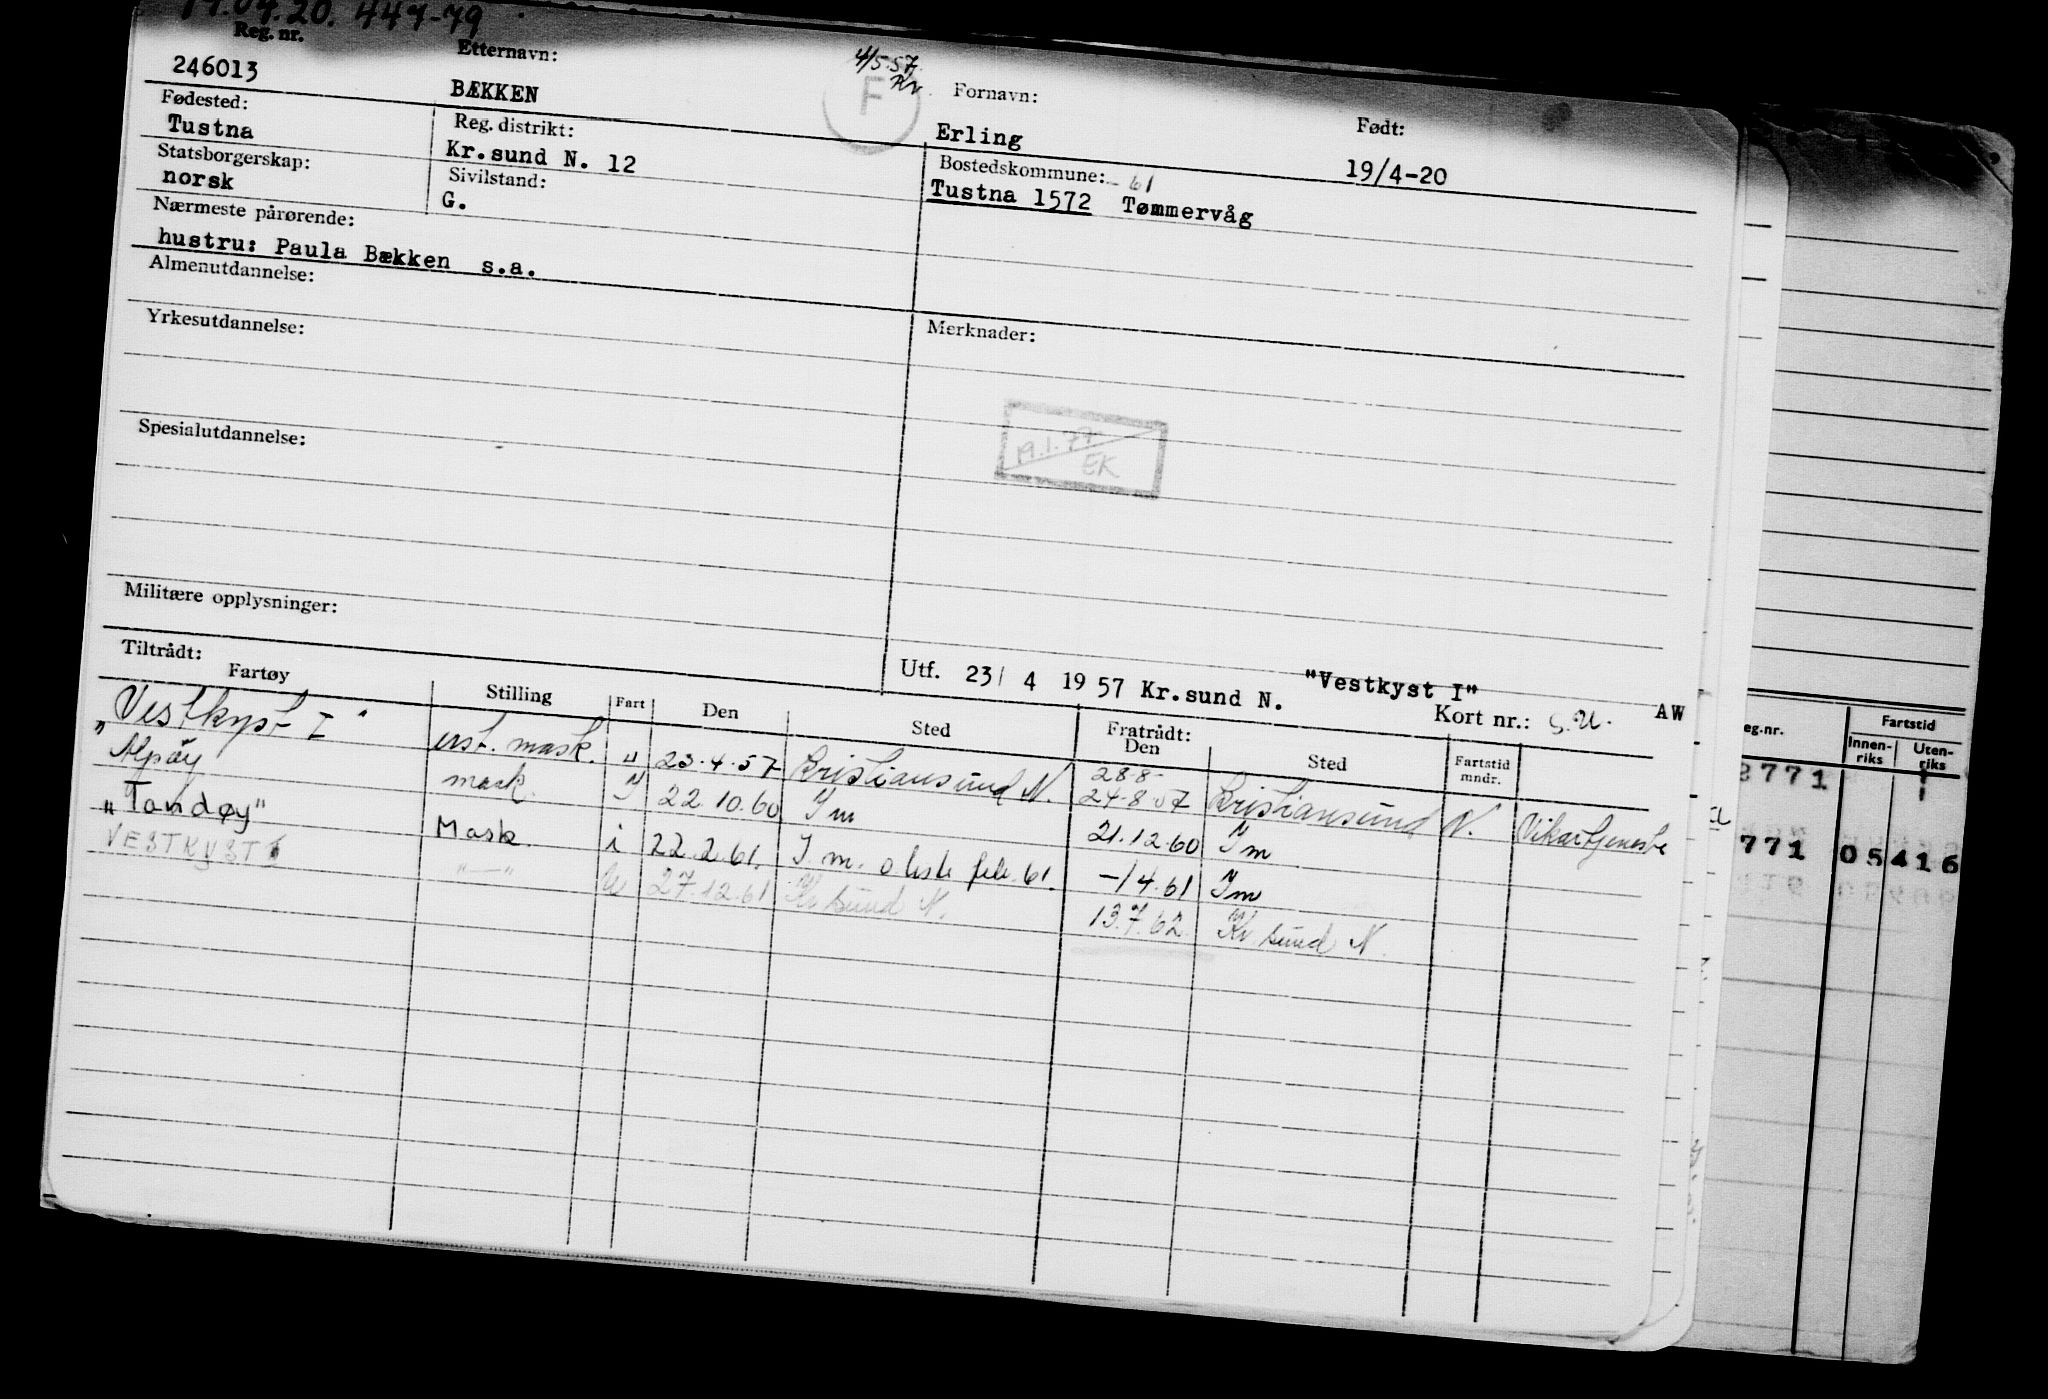 19.04.20. 447-79
Reg. nr. Etternavn: 4/5.57. Kr. Fornavn: Født:
246013 BÆKKEN F Erling 19/4-20
Fødested: Reg. distrikt: Bostedskommune: - 61
Tustna Kr.sund N. 12 Tustna 1572 Tømmervåg
Statsborgerskap: Sivilstand:
norsk G.
Nærmeste pårørende:
hustru: Paula Bækken s.a.
Almenutdannelse:
Yrkesutdannelse: Merknader:
19.1.77
EK
Spesialutdannelse:
Militære opplysninger:
Utf. 23/ 4 1957 Kr.sund N. "Vestkyst I"
Tiltrådt: Kort nr.: AW
Fartøy Stilling Fart Den Sted Fratrådt: Den Sted Fartstid mndr.
"Vestkyst I" ass. mask. " 23.4.57 Kristiansund N. 28.8- 24.8.57 Kristiansund N. Vikartjeneste
mask. 22.10.60 I m 21.12.60 I m
"Tandøy" Mask. i 22.2.61. I m. o liste feb. 61. -1 4.61 I m
VESTKYST I "—" U 27.12.61 Kr sund N. 13.7.62. Kr. sund N.
eg.nr. Fartstid
Innen-riks Uten-riks
2771
771 05416